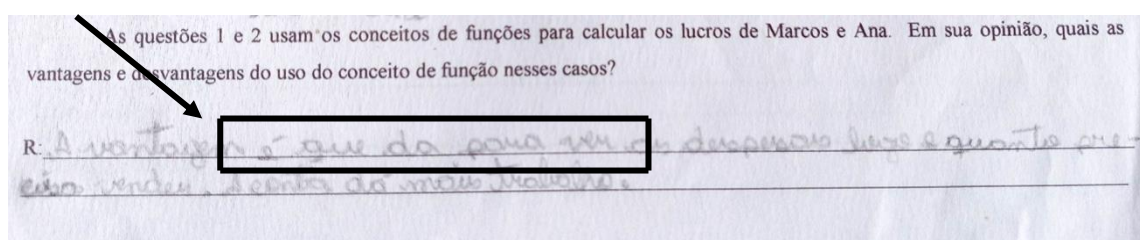 As questões 1 e 2 usam os conceitos de funções para calcular os lucros de Marcos e Ana. Em sua opinião, quais as
vantagens e desvantagens do uso do conceito de função nesses casos?
R: A vantagem é que da para ver as despesas e quanto pre-
ciso vender. A conta dá mais trabalho.